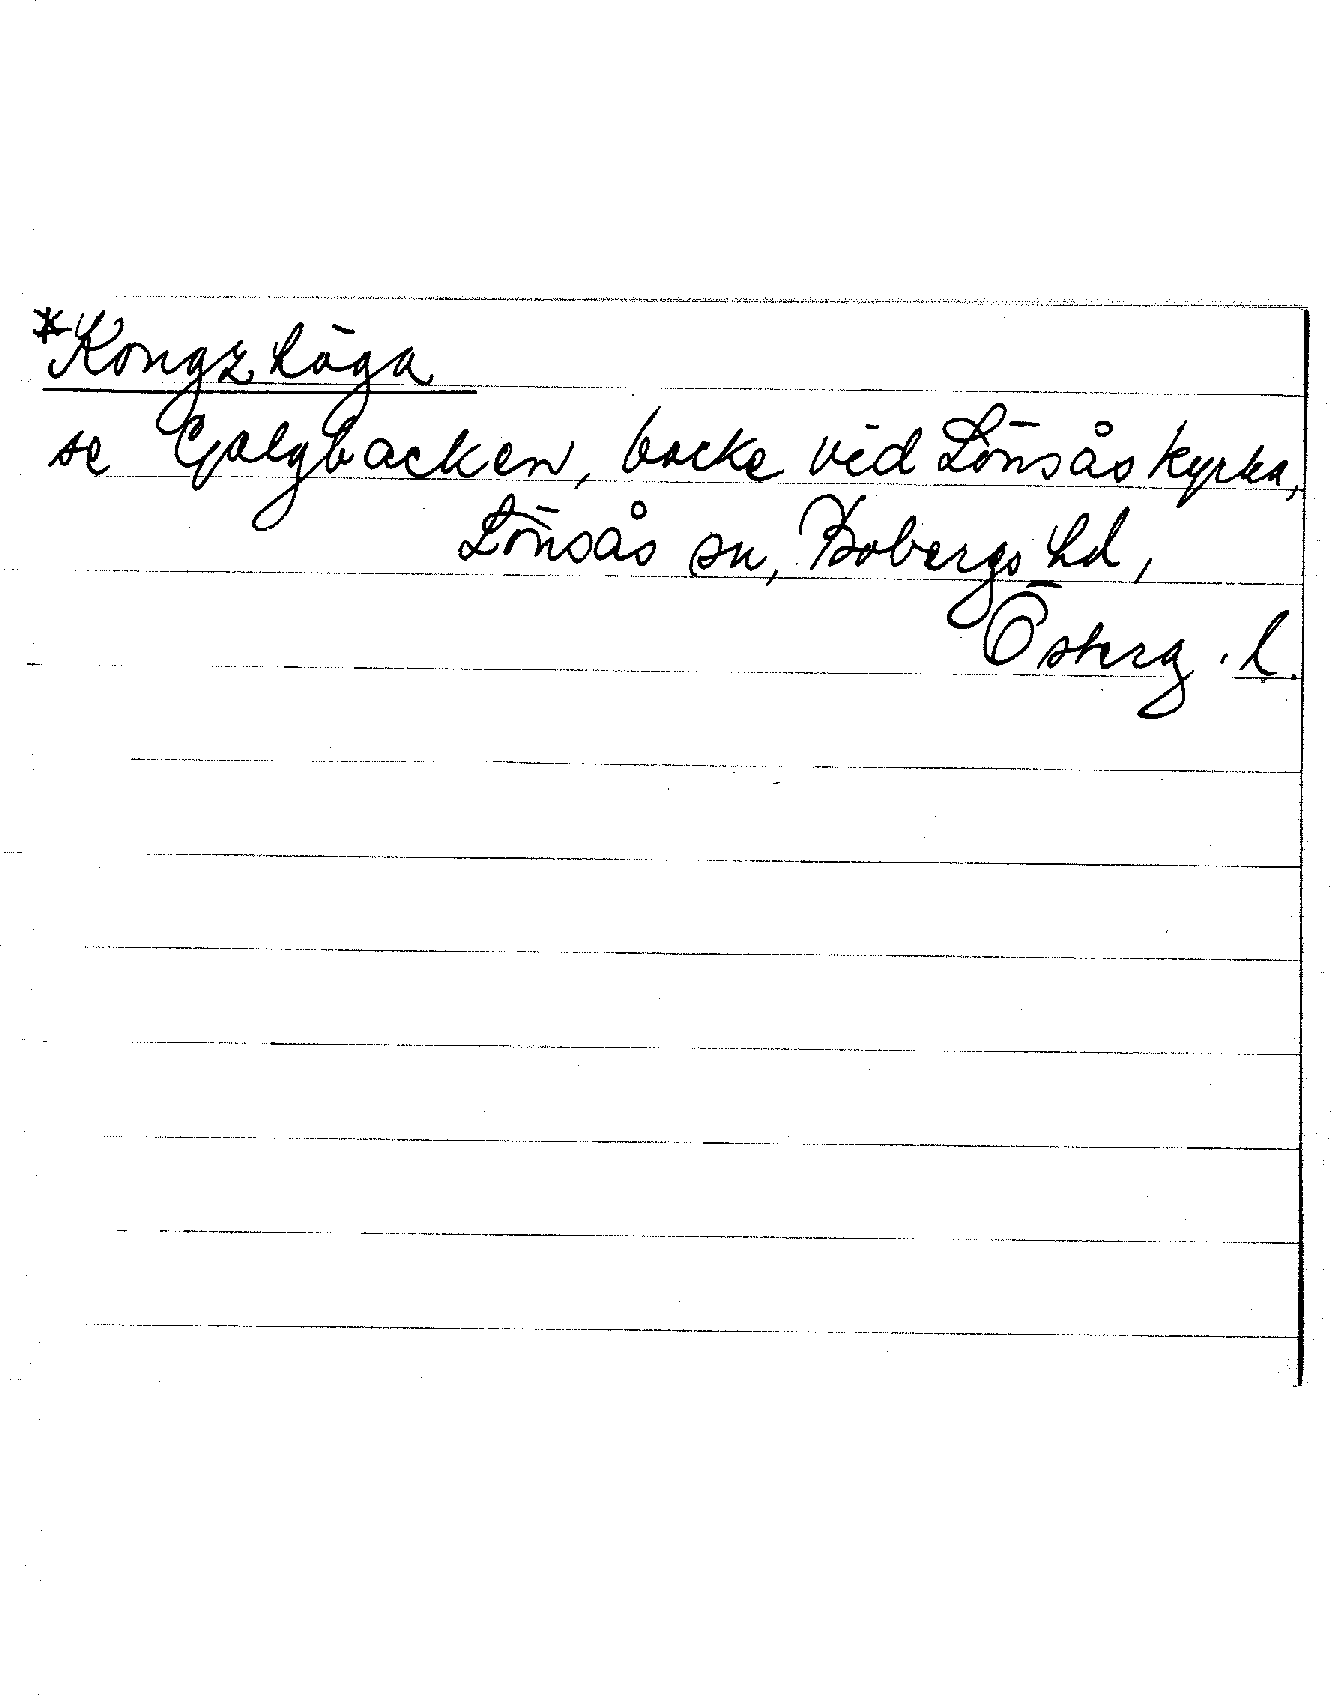 *Kongz höga
se Galgbacken, backe vid Lönsås kyrka,
Lönsås sn, Bobergs hd,
Österg. l.